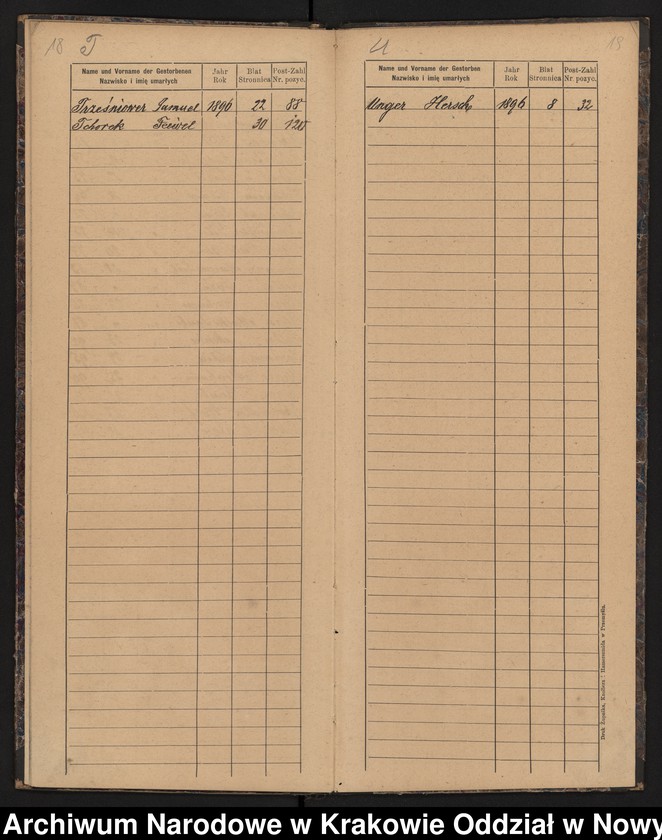 18 T
Name und Vorname der Gestorbenen
Nazwisko i imię umarłych
Jahr
Rok
Blat
Stronnica
Post-Zahl
Nr. pozyc.
Trześniower Samuel 1896 22 88
Tchorek Feiwel 30 120
U 18
Name und Vorname der Gestorbenen
Nazwisko i imię umarłych
Jahr
Rok
Blat
Stronnica
Post-Zahl
Nr. pozyc.
Unger Hersch 1896 8 32
Druk Zupnika, Knollera i Hammermana w Przemyślu.
Archiwum Narodowe w Krakowie Oddział w Nowy